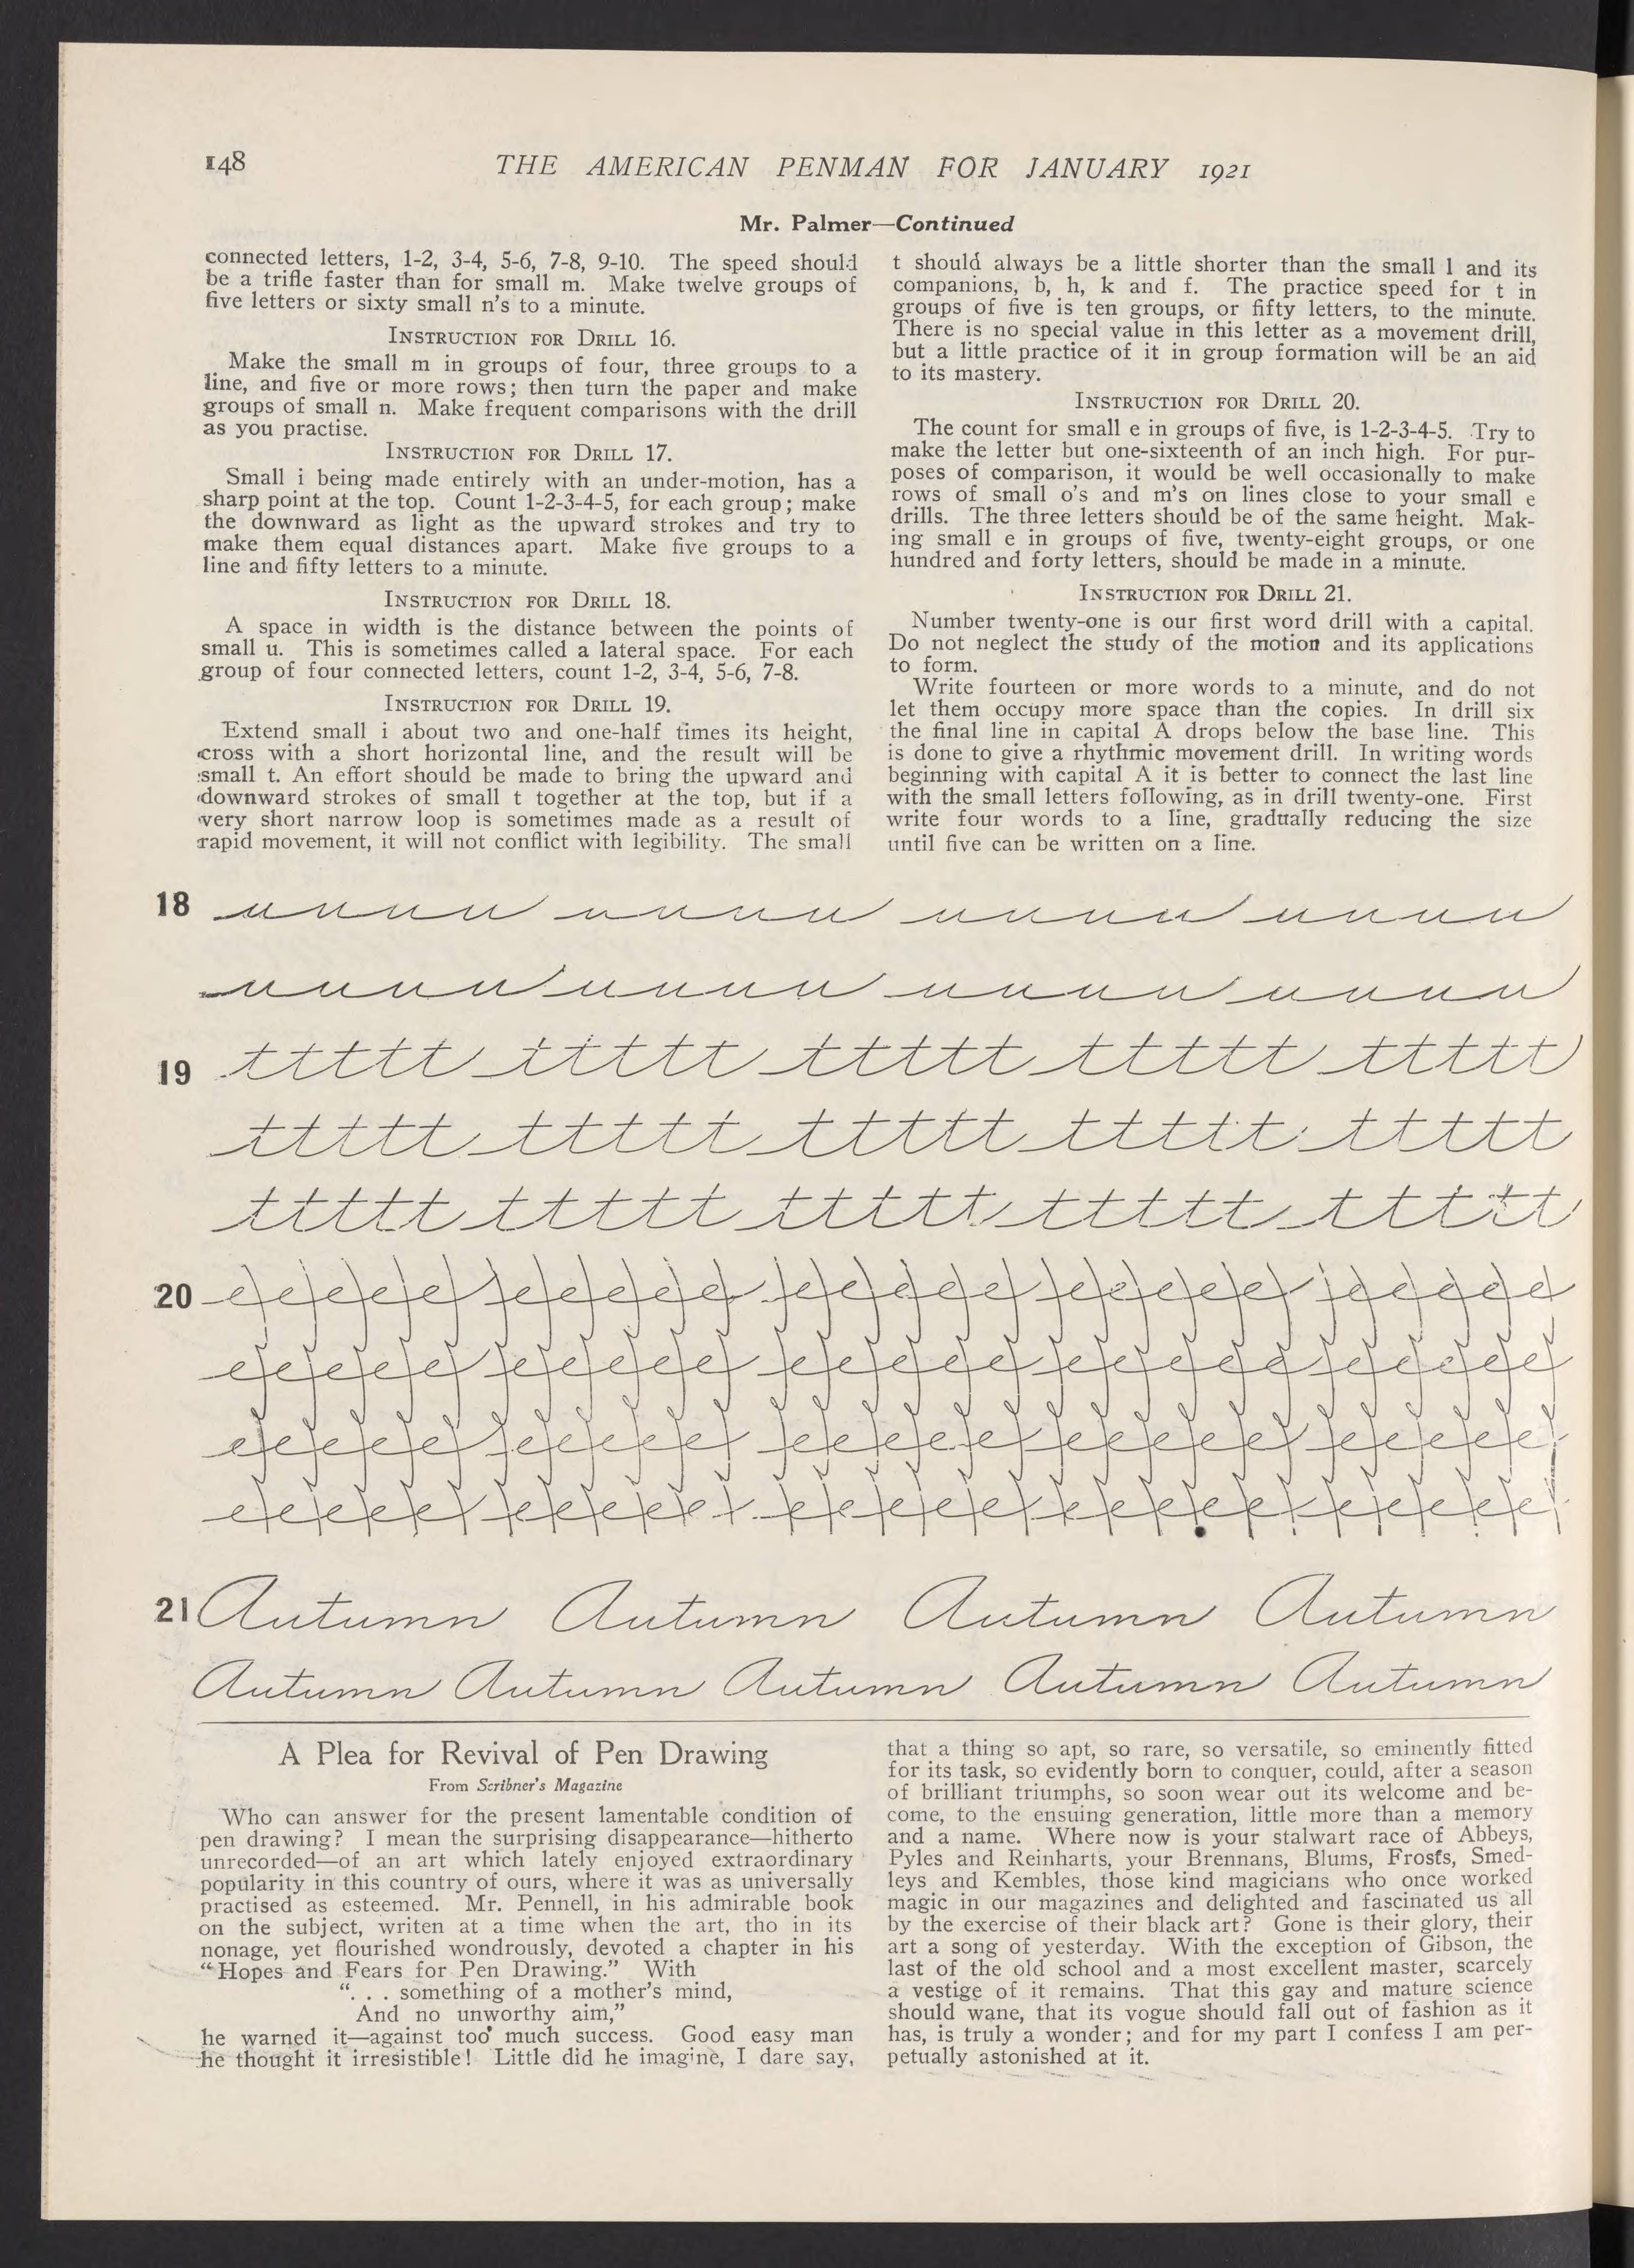 148
THE AMERICAN PENMAN FOR JANUARY 1921
Mr. Palmer—Continued
connected letters, 1-2, 3-4, 5-6, 7-8, 9-10. The speed should
be a trifle faster than for small m. Make twelve groups of
five letters or sixty small n's to a minute.
INSTRUCTION FOR DRILL 16.
Make the small m in groups of four, three groups to a
line, and five or more rows; then turn the paper and make
groups of small n. Make frequent comparisons with the drill
as you practise.
INSTRUCTION FOR DRILL 17.
Small i being made entirely with an under-motion, has a
sharp point at the top. Count 1-2-3-4-5, for each group; make
the downward as light as the upward strokes and try to
make them equal distances apart. Make five groups to a
line and fifty letters to a minute.
INSTRUCTION FOR DRILL 18.
A space in width is the distance between the points of
small u. This is sometimes called a lateral space. For each
group of four connected letters, count 1-2, 3-4, 5-6, 7-8.
INSTRUCTION FOR DRILL 19.
Extend small i about two and one-half times its height,
cross with a short horizontal line, and the result will be
small t. An effort should be made to bring the upward and
downward strokes of small t together at the top, but if a
very short narrow loop is sometimes made as a result of
rapid movement, it will not conflict with legibility. The small
t should always be a little shorter than the small l and its
companions, b, h, k and f. The practice speed for t in
groups of five is ten groups, or fifty letters, to the minute.
There is no special value in this letter as a movement drill,
but a little practice of it in group formation will be an aid
to its mastery.
INSTRUCTION FOR DRILL 20.
The count for small e in groups of five, is 1-2-3-4-5. Try to
make the letter but one-sixteenth of an inch high. For pur-
poses of comparison, it would be well occasionally to make
rows of small o's and m's on lines close to your small e
drills. The three letters should be of the same height. Mak-
ing small e in groups of five, twenty-eight groups, or one
hundred and forty letters, should be made in a minute.
INSTRUCTION FOR DRILL 21.
Number twenty-one is our first word drill with a capital.
Do not neglect the study of the motion and its applications
to form.
Write fourteen or more words to a minute, and do not
let them occupy more space than the copies. In drill six
the final line in capital A drops below the base line. This
is done to give a rhythmic movement drill. In writing words
beginning with capital A it is better to connect the last line
with the small letters following, as in drill twenty-one. First
write four words to a line, gradually reducing the size
until five can be written on a line.
18 uuuu uuuu uuuu uuuu
uuuu uuuu uuuu uuuu
19 ttttt ttttt ttttt ttttt ttttt
ttttt ttttt ttttt ttttt ttttt
ttttt ttttt ttttt ttttt ttttt
20 eeeee eeeee eeeee eeeee eeeee
eeeee eeeee eeeee eeeee eeeee
eeeee eeeee eeeee eeeee eeeee
eeeee eeeee eeeee eeeee eeeee
21 Autumn Autumn Autumn Autumn
Autumn Autumn Autumn Autumn Autumn
A Plea for Revival of Pen Drawing
From Scribner's Magazine
Who can answer for the present lamentable condition of
pen drawing? I mean the surprising disappearance—hitherto
unrecorded—of an art which lately enjoyed extraordinary
popularity in this country of ours, where it was as universally
practised as esteemed. Mr. Pennell, in his admirable book
on the subject, writen at a time when the art, tho in its
nonage, yet flourished wondrously, devoted a chapter in his
"Hopes and Fears for Pen Drawing." With
". . . something of a mother's mind,
And no unworthy aim,"
he warned it—against too much success. Good easy man
he thought it irresistible! Little did he imagine, I dare say,
that a thing so apt, so rare, so versatile, so eminently fitted
for its task, so evidently born to conquer, could, after a season
of brilliant triumphs, so soon wear out its welcome and be-
come, to the ensuing generation, little more than a memory
and a name. Where now is your stalwart race of Abbeys,
Pyles and Reinharts, your Brennans, Blums, Frosts, Smed-
leys and Kembles, those kind magicians who once worked
magic in our magazines and delighted and fascinated us all
by the exercise of their black art? Gone is their glory, their
art a song of yesterday. With the exception of Gibson, the
last of the old school and a most excellent master, scarcely
a vestige of it remains. That this gay and mature science
should wane, that its vogue should fall out of fashion as it
has, is truly a wonder; and for my part I confess I am per-
petually astonished at it.